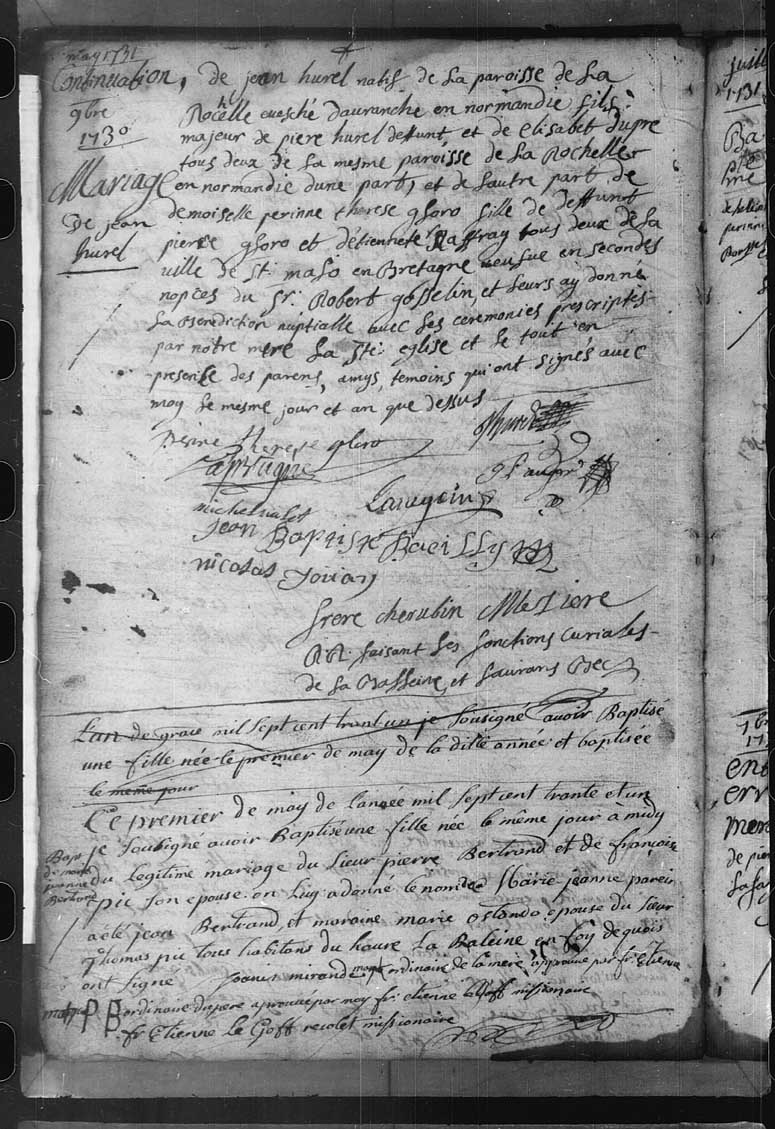 may 1731
Continuation, de jean hurel natif de la paroisse de La
9bre Rochelle evesché davranche en normandie fils
1730 majeur de piere hurel deffunt, et de elisabet dupre
tous deux de la mesme paroisse de la Rochelle
Mariage en normandie dune part, et de lautre part de
De jean demoiselle perinne therese gloro fille de deffunt
hurel pierre gloro et détiennete Raffray tous deux de la
ville de St. malo en Bretagne veufue en secondes
nopces du Sr. Robert gosselin, et leurs ay donné
La Benediction nuptialle avec les ceremonies prescriptes
par notre mere La Ste eglise et le tout en
presence des parens, amys, temoins qui ont signés avec
moy le mesme jour et an que dessus
Perine therese gloro hurel
michel
Jean Baptiste Bailly
nicolas Jouan
frere cherubin
faisant les fonctions Curiales
de la Basseine et Rec
Lan de grace mil Sept cent trant un je Sousigné avoir Baptisé
une fille née le premier de may de la ditte année et baptisee
le meme jour
Ce premier de may de Lannée mil Sept cent trante et un
je Soubsigné avoir Baptisé une fille née le même jour à midy
Bap. de marie jeanne Bertrand
du legitime mariage du Sieur pierre Bertrand et de françoise
pic son epouse. on Luy a donné le nom de Marie jeanne parein
a été jean Bertrand et maraine marie ostando epouse du Sieur
Thomas pic tous habitans du havre La Baleine en foy de quois
ont Signé joanis mirande ordinaire de la mere approuvé par fr. Etienne
marque PB ordinaire du pere aprouué par moy fr. etienne le Goff missionaire
fr. Etienne Le Goff recolet missionaire
juill
1731